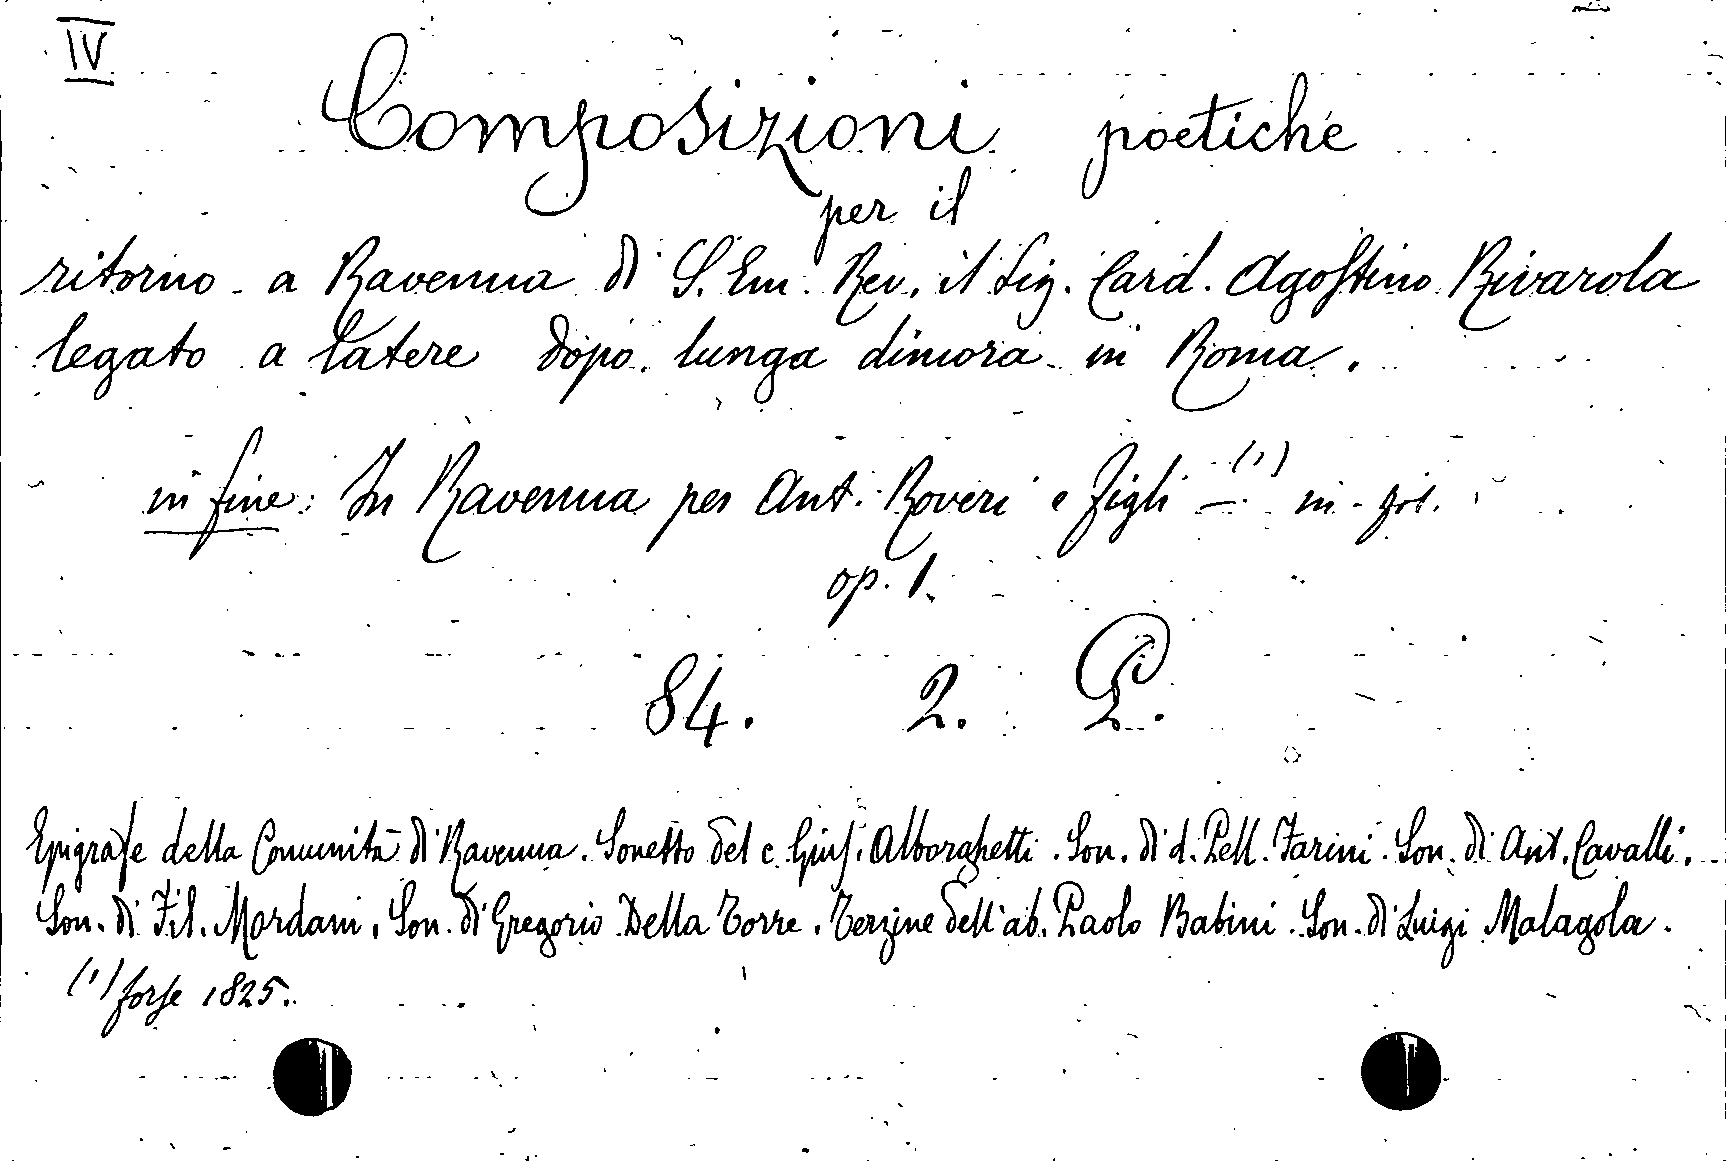 IV
Composizioni poetiche
per il
ritorno a Ravenna di S. Em. Rev. il Sig. Card. Agostino Rivarola
legato a latere dopo lunga dimora in Roma.
in fine: In Ravenna per Ant. Roveri e figli — (1) in-fol.
op. 1.
84. 2. P.
Epigrafe della Comunità di Ravenna. Sonetto del c. Gius. Alborghetti. Son. di d. Pell. Farini. Son. di Ant. Cavalli.
Son. di Fil. Mordani. Son. di Gregorio Della Torre. Terzine dell'ab. Paolo Babini. Son. di Luigi Malagola.
(1) forse 1825.